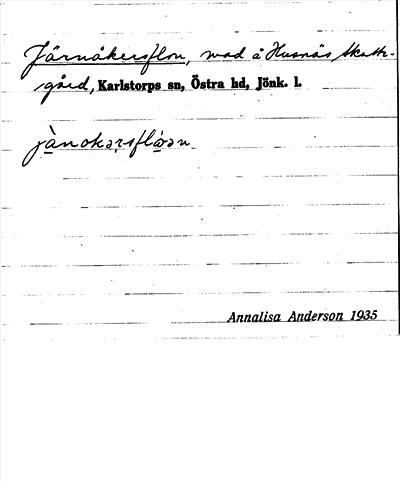 Järnåkersflon, mad å Husnäs Skatte-
gård, Karlstorps sn, Östra hd, Jönk. l.
jànokərsflòən
Annalisa Anderson 1935